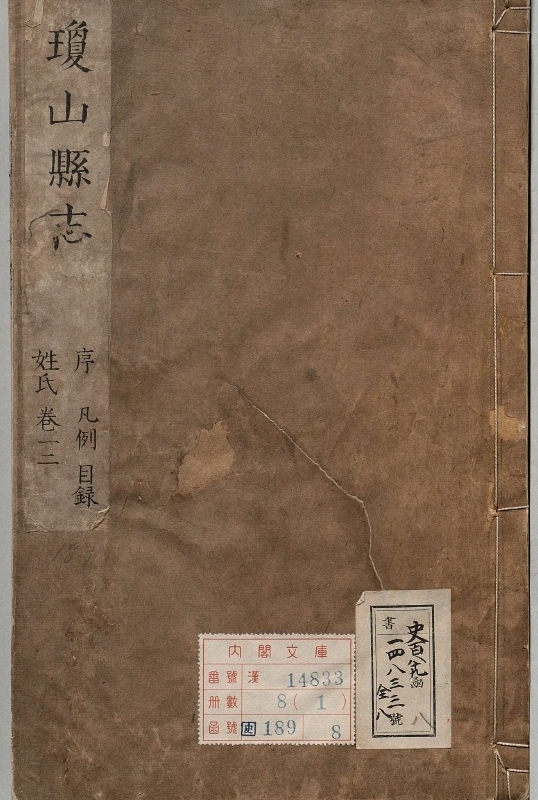 瓊山縣志
序 凡例 目録
姓氏 巻一二
内閣文庫
番號 漢 14833
册數 8(1)
函號 史 189 8
書
史百八九函
一四八三三號
全八
八